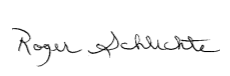 Roger Schlichte